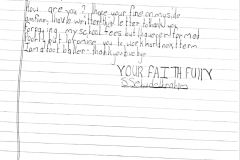 How are you? I hope your fine on my side
am fine, I have written this letter to thank you
for paying my school fees but I have performed
poorly but I promise you to work hard next term
I am a foot baller. thank you bye
YOUR FAITHFULLY